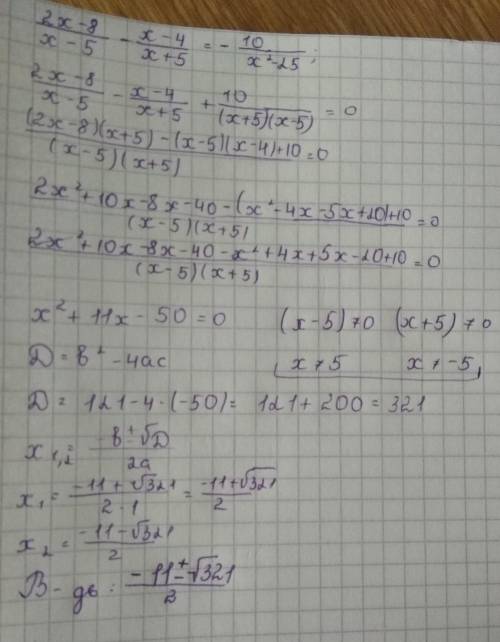 (2x-8)/(x-5) - (x-4)/(x+5) = - 10/(x²-25);
(2x-8)/(x-5) - (x-4)/(x+5) + 10/((x+5)(x-5)) = 0
((2x-8)(x+5)-(x-5)(x-4)+10)/((x-5)(x+5)) = 0
(2x²+10x-8x-40-(x²-4x-5x+20)+10)/((x-5)(x+5)) = 0
(2x²+10x-8x-40-x²+4x+5x-20+10)/((x-5)(x+5)) = 0
x²+11x-50=0 (x-5)≠0 (x+5)≠0
D=b²-4ac x≠5 x≠-5
D= 121-4·(-50)= 121+200=321
x₁,₂= (-b±√D)/2a
x₁= (-11+√321)/(2·1) = (-11+√321)/2
x₂= (-11-√321)/2
В-дь: (-11±√321)/2